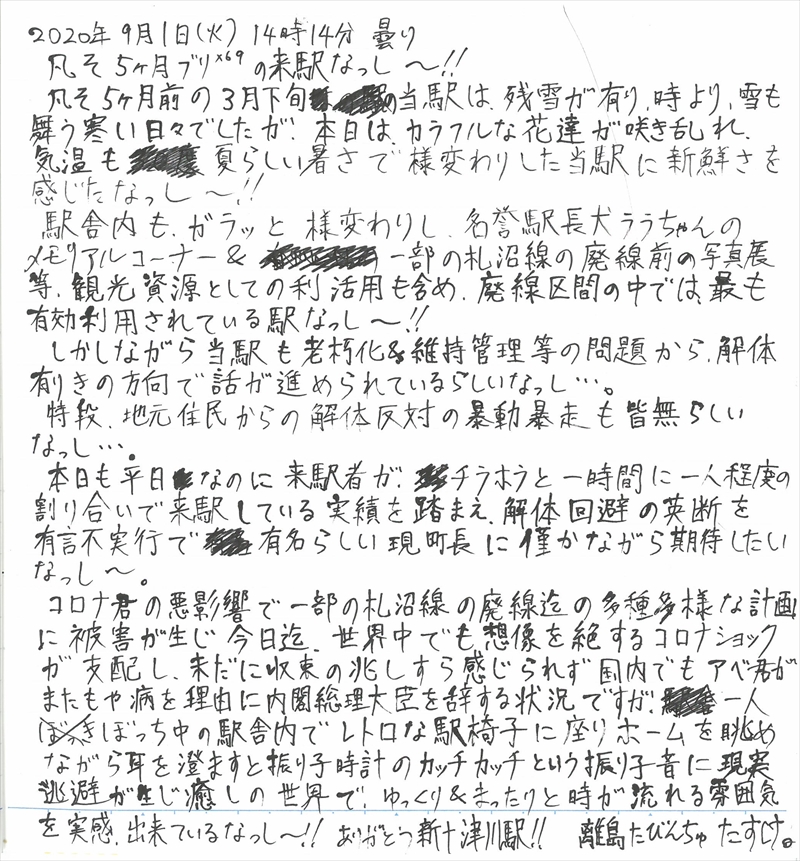 2020年9月1日(火) 14時14分 曇り
凡そ5ヶ月ブリ×69の来駅なっし〜!!
凡そ5ヶ月前の3月下旬 当駅は、残雪が有り、時より、雪も
舞う寒い日々でしたが、本日は、カラフルな花達が咲き乱れ、
気温も 夏らしい暑さで様変わりした当駅に新鮮さを
感じたなっし〜!!
駅舎内も、ガラッと様変わりし、名誉駅長犬ララちゃんの
メモリアルコーナー& 一部の札沼線の廃線前の写真展
等、観光資源としての利活用も含め、廃線区間の中では、最も
有効利用されている駅なっし〜!!
しかしながら当駅も老朽化&維持管理等の問題から、解体
有りきの方向で話が進められているらしいなっし…。
特段、地元住民からの解体反対の暴動暴走も皆無らしい
なっし…。
本日も平日 なのに来駅者が、 チラホラと一時間に一人程度の
割り合いで来駅している実績を踏まえ、解体回避の英断を
有言不実行で 有名らしい現町長に僅かながら期待したい
なっし〜。
コロナ君の悪影響で一部の札沼線の廃線迄の多種多様な計画
に被害が生じ今日迄、世界中でも想像を絶するコロナショック
が支配し、未だに収束の兆しすら感じられず国内でもアベ君が
またもや病を理由に内閣総理大臣を辞する状況ですが、 一人
ぼっち中の駅舎内でレトロな駅椅子に座りホームを眺め
ながら耳を澄ますと振り子時計のカッチカッチという振り子音に現実
逃避が生じ癒しの世界で、ゆっくり&まったりと時が流れる雰囲気
を実感、出来ているなっし〜!! ありがとう新十津川駅!! 離島たびんちゅ たすけ。